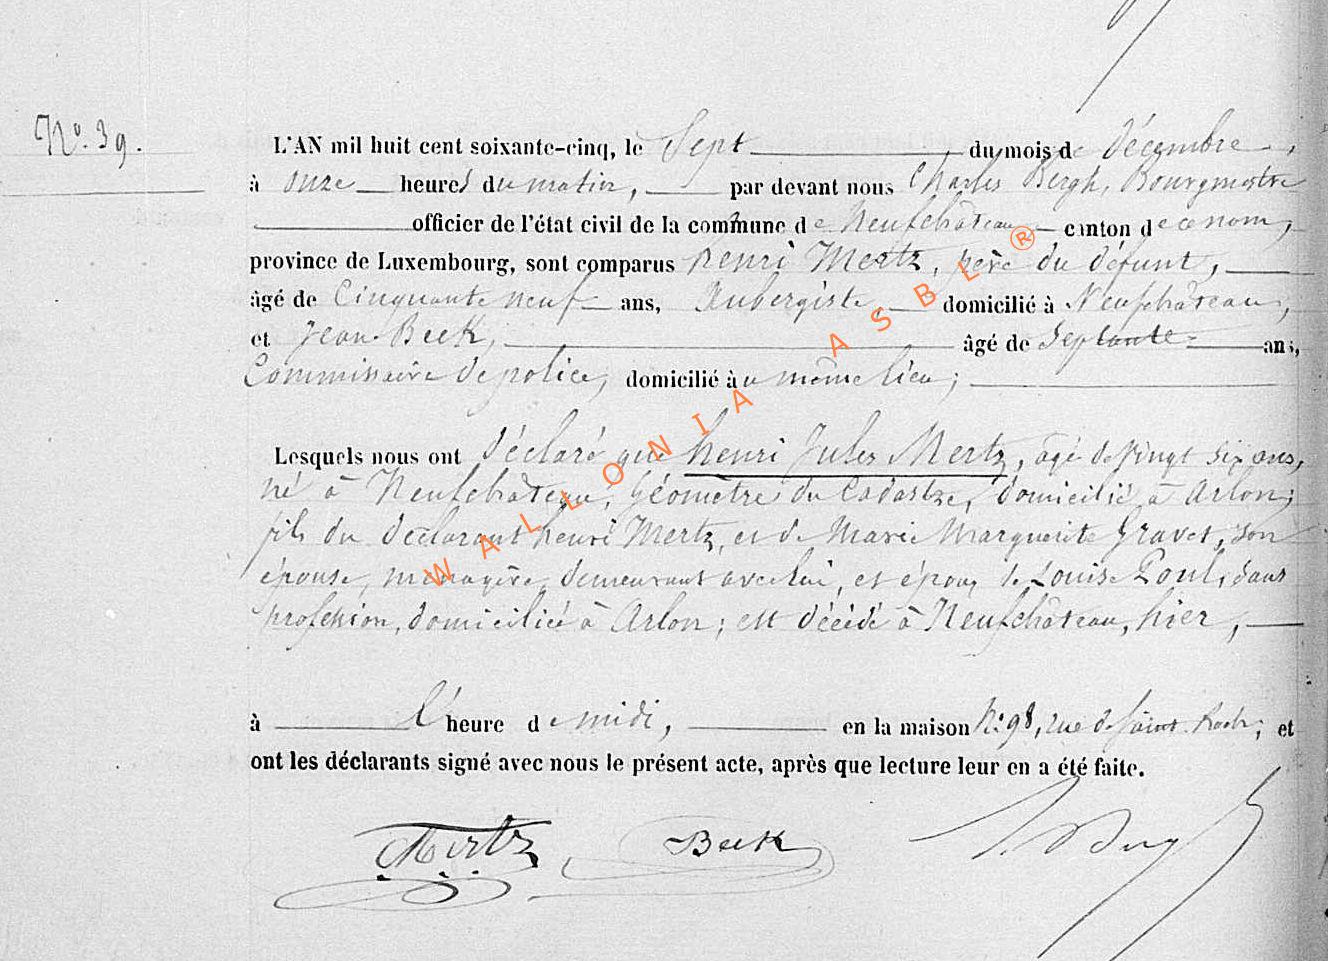 N.º 39.
L'AN mil huit cent soixante-cinq, le Sept du mois de Décembre,
à onze heures du matin, par devant nous Charles Bergh, Bourgmestre
officier de l'état civil de la commune de Neufchâteau canton de ce nom,
province de Luxembourg, sont comparus henri Mertz, père du défunt,
âgé de Cinquante neuf ans, Aubergiste, domicilié à Neufchâteau,
et Jean Beck, âgé de Septante ans,
Commissaire de police, domicilié au même lieu;
Lesquels nous ont déclaré que henri Jules Mertz, âgé de Vingt six ans,
né à Neufchâteau, Géomètre du Cadastre, domicilié à Arlon;
fils du déclarant henri Mertz, et de Marie Marguerite Gravet, son
épouse, ménagère demeurant avec lui, et époux de Louise Poul, sans
profession, domiciliée à Arlon; est décédé à Neufchâteau, hier,
à l'heure de midi, en la maison N.º 98, rue de Saint Roch; et
ont les déclarants signé avec nous le présent acte, après que lecture leur en a été faite.
Mertz Beck
WALLONIA ASBL ®